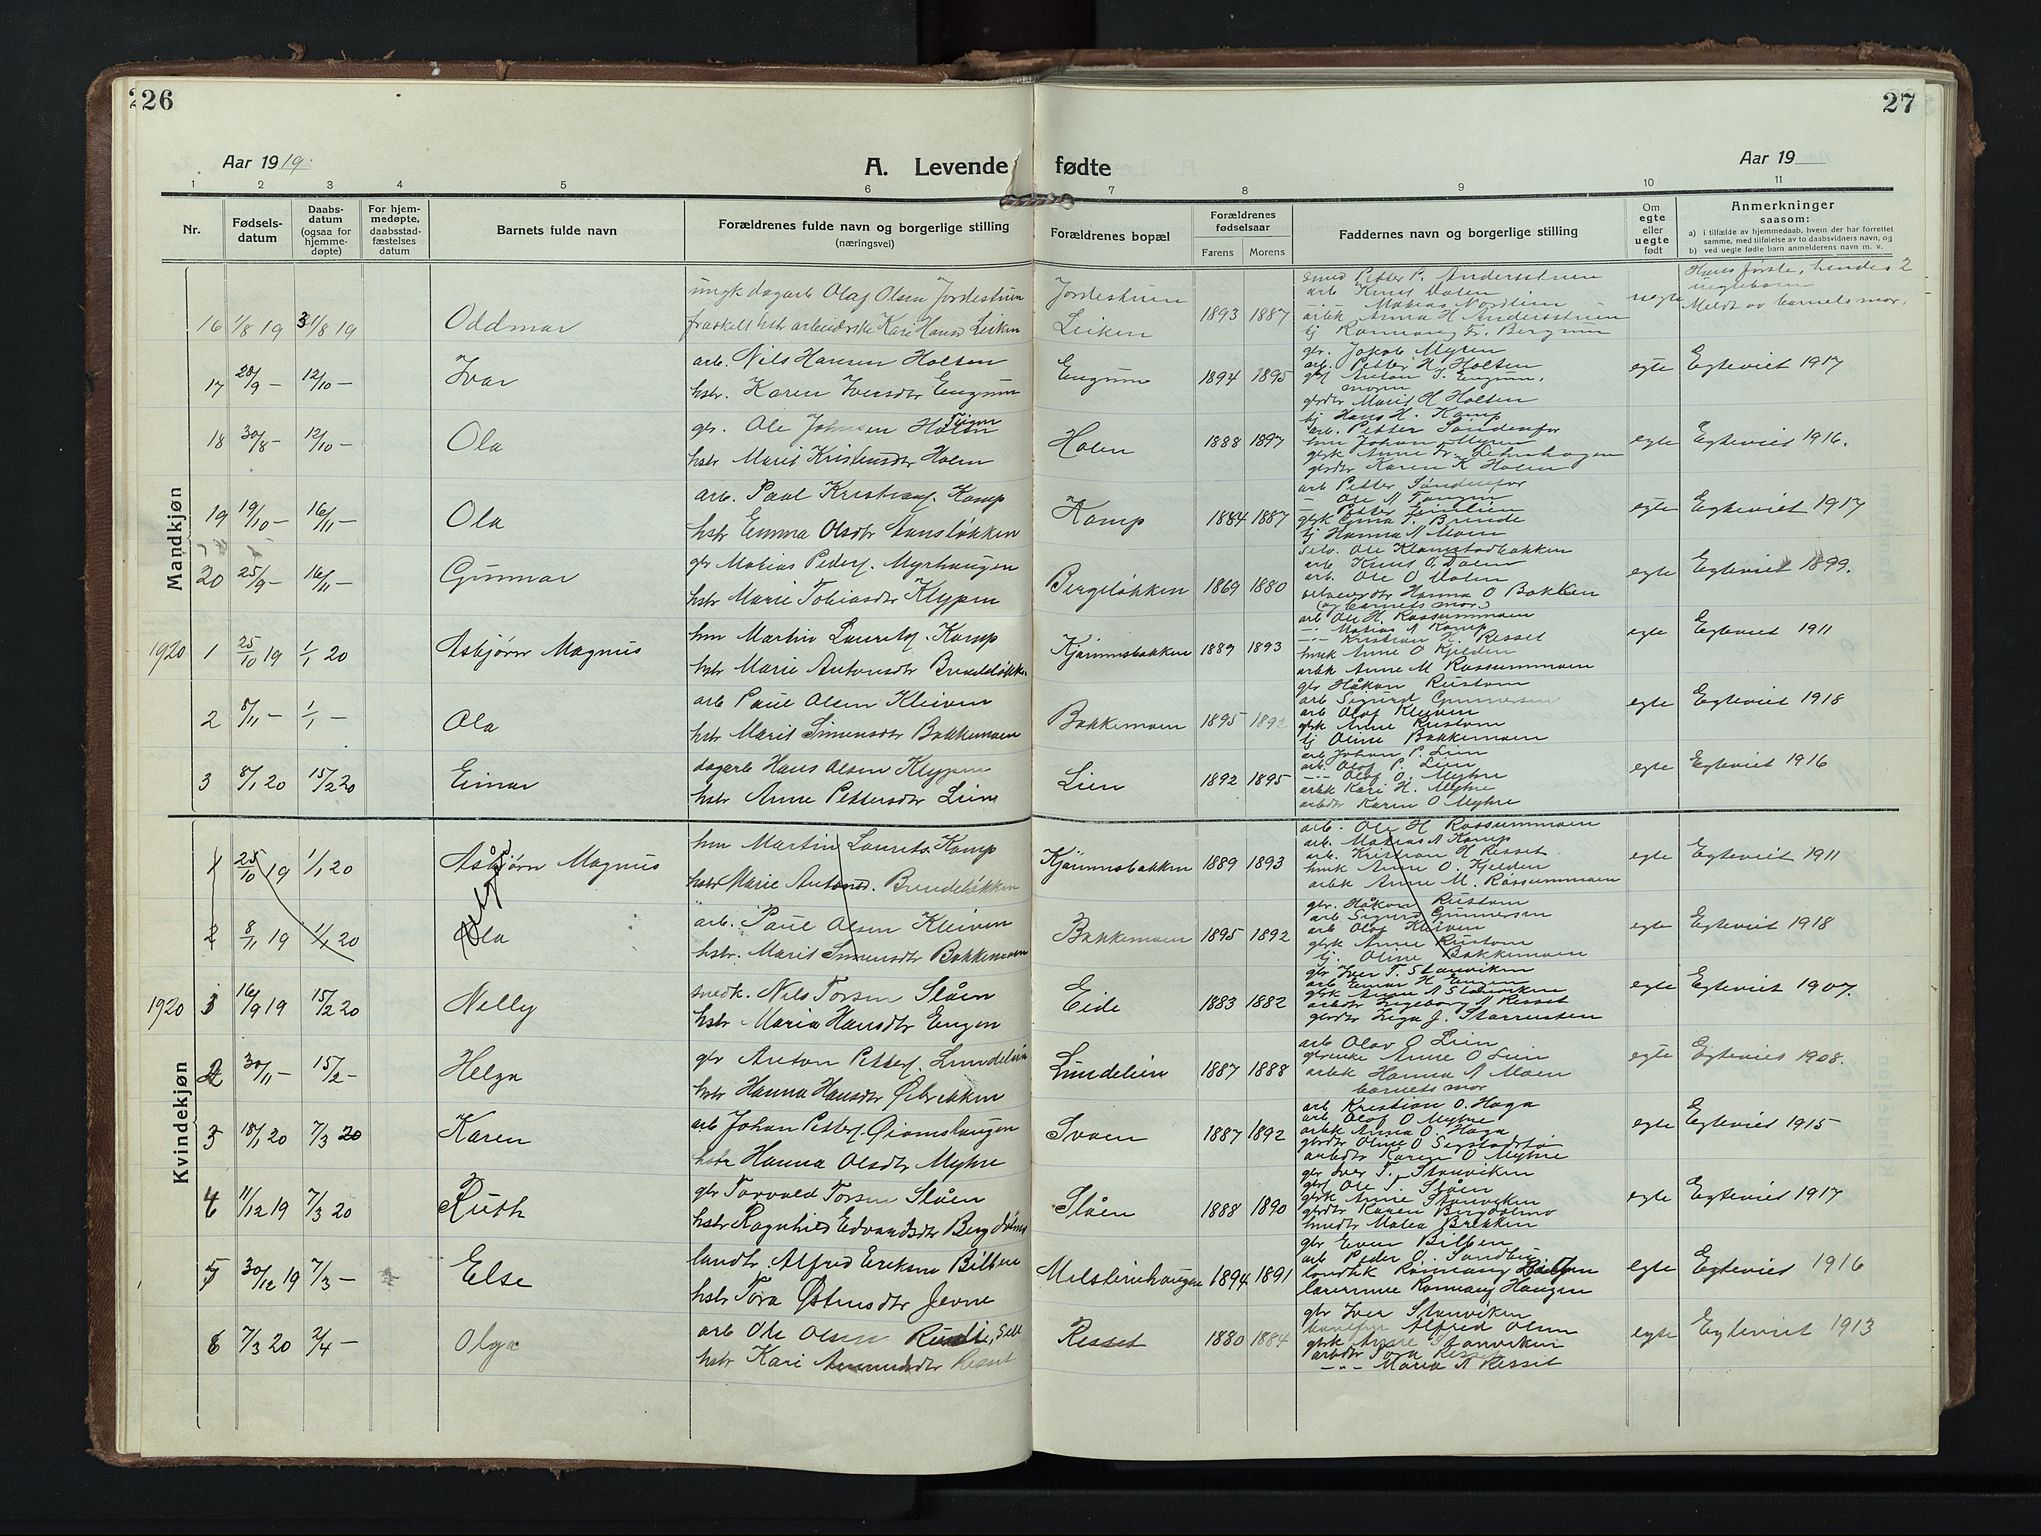 26
27
Aar 1919.
A. Levende fødte
Aar 19
1 2 3 4 5 6 7 8 9 10 11
Nr. Fødsels-datum Daabs-datum (ogsaa for hjemme-døpte) For hjem-medøpte, daabsstad-fæstelses datum Barnets fulde navn Forældrenes fulde navn og borgerlige stilling (næringsvei) Forældrenes bopæl Forældrenes fødselsaar Farens Morens Faddernes navn og borgerlige stilling Om egte eller uegte født Anmerkninger saasom:
a) i tilfælde av hjemmedaab, hvem der har forrettet samme, med tilføielse av to daabsvidners navn, og
b) ved uegte fødte barn anmelderens navn m. v.
Mandkjøn
16 1/8 19 31/8 19 Oddmar
ungk dagarb Olaf Olsen Jordestuen
fraskelt hst arbeiderske Kari Hansd Leiken
Jordestuen
Leiken
1893 1887
smed Petter P. Andersstuen
arb Knut Dalen
--- Matias Nordlien
arbk Anna H Andersstuen
tj Rønnaug Fr. Bergum
uegte
Hans første, hendes 2
uegtebarn
Meldt av barnets mor.
17 28/9 - 12/10 - Ivar
arb. Nils Hansen Holten
hstr. Karen Iversdtr Engum
Engum
1894 1895
gbr. Jakob Myren
arb. Petter H. Holten
gbs Anton I. Engum,
moren
gbrdtr Marit H Holten
egte Egteviet 1917
18 30/8 - 12/10 - Ola
gbr. Ole Johnsen Holen
hstr Marit Kristensdtr Holen
Holen
1888 1897
tj Hans H. Kamp
arb. Petter Søndenfor
hm Johan Myren
gbrk Anne Fr.
gbrdtr Karen K Holen
egte Egteviet 1916.
19 19/10 - 16/11 - Ola
arb. Paul Kristians. Kamp
hstr Emma Olsdtr Aansløkken
Kamp
1884 1887
arb Petter Søndenfor
- Ole A Tangen
- Petter Heimlien
gbrk Emma T. Brende
tj Hanna A Moen
egte Egteviet 1917
20 25/9 - 16/11 - Gunnar
gbr Matias Peders. Myrhaugen
hstr Marie Tobiasdtr Klypen
Bergeløkken
1869 1880
selv. Ole Klomstadbakken
arb Knut O Dalen
arb. Ole O Dalen
selveierdtr Hanna O Bakken
(og barnets mor.)
egte Egteviet 1899.
1920 1 25/10 19 1/1 20 Asbjørn Magnus
hm Martin Lauritss. Kamp
hstr Marie Antonsdtr Brudeløkk.
Kjørumsbakken
1889 1893
arb Ole H. Rossummoen
--- Matias A Kamp
--- Kristian H. Resset
hmk Anne O Kjelden
arbk Anne M Rossummoen
egte Egteviet 1911
2 8/11 - 1/1 - Ola
arb Paul Olsen Kleiven
hstr Marit Simensdtr Bakkemoen
Bakkemoen
1895 1892
gbr Håkon Rustom
arb Sigurd Gunnersen
arb Olof Kleiven
gbrk Anne Rustom
tj Oline Bakkemoen
egte Egteviet 1918
3 8/1 20 15/2 20 Einar
dagarb Hans Olsen Klypen
hstr Anne Pettersdtr Lien
Lien
1892 1895
arb Johan P. Lien
arb. Olof P. Lien
--- Olof O. Myhre
arbk Kari H. Myhre
arbdtr Karen O Myhre
egte Egteviet 1916
Kvindekjøn
1 25/10 19 1/1 20 Asbjørn Magnus
hm Martin Laurits. Kamp
hstr Marie Antonsd. Brudeløkken
Kjørumsbakken
1889 1893
arb. Ole H Rossummoen
arb. Matias A Kamp
arb. Kristian H Resset
hmk Anne O. Kjelden
arbk Anne M. Rossummoen
egte Egteviet 1911
2 8/11 19 1/1 20 Ola
arb. Paul Olsen Kleiven
hstr. Marit Simensdtr Bakkemoen
Bakkemoen
1895 1892
gbr. Håkon Rustom
arb Sigurd Gunnersen
arb Olof Kleiven
gbrk Anne Rustom
tj. Oline Bakkemoen
egte Egteviet 1918
1920 16/9 19 15/2 20 Nelly
snedk. Nils Torsen Slåen
hstr Maria Hansdtr Engen
Eide
1883 1882
gbr Iver T. Stenviken
arb Einar H Engen
gbrk Anne A Stenviken
arbdtr Ingeborg A Resset
gbrdtr Inga J. Storrusten
egte Egteviet 1907.
2 30/11 - 15/2 - Helga
gbr Anton Petters. Lundelien
hstr Hanna Hansdtr Øibrekken
Lundelien
1887 1888
arb Olav O Lien
gbrenke Anne O Lien
arbk Hanna A Moen
barnets mor
egte Egteviet 1908.
3 18/1 20 7/3 20 Karen
arb Johan Petters. Qvamshaugen
hstr Hanna Olsdtr Myhre
Svoen
1887 1892
arb Kristian O. Haga
arb Olof O Myhre
arbk Anna O Haga
gbrdtr Oline O Segstadstø
arbdtr Karen O Myhre
egte Egteviet 1915
4 11/12 19 7/3 20 Ruth
gbr Torvald Torsen Slåen
hstr Ragnhild Edvardsdtr Bergdølmo
Slåen
1888 1890
gbr Iver T. Stenviken
gbs Ole T Slåen
gbrk Anne Stenviken
gbrdtr Karen Bergdølmo
hmdtr Malea Brekken
egte Egteviet 1917
5 30/12 19 7/3 - Else
landh. Alfred Eriksen Bilben
hstr Tora Østensdtr Jevne
Milsteinhaugen
1894 1891
gbr Even Bilben
arb Peder O. Sandbu
landhk Rønnaug Bilben
lærerinne Rønnaug Haugen
egte Egteviet 1916
6 7/3 20 2/4 - Olga
arb Ole Olsen
hstr Kari Amundsdtr Resset
Resset
1880 1884
gbr Iver Stenviken
Alfred Olsen
gbrk Anne Stenviken
arbdtr Tora Resset
--- Maria A Resset
egte Egteviet 1913